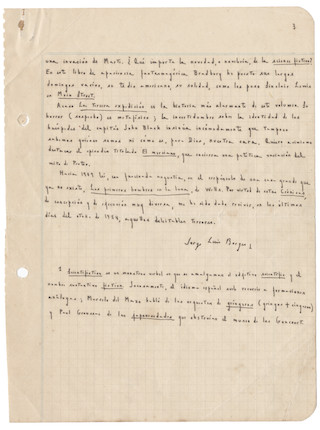 3
una invasión de Marte. ¿Qué importa la novedad, o novelería, de la science fiction?
En este libro de apariencia fantasmagórica, Bradbury ha puesto sus largos
domingos vacíos, su tedio americano, su soledad, como los puso Sinclair Lewis
en Main Street.
Acaso La tercera expedición es la historia más alarmante de este volumen. Su
horror (sospecho) es metafísico; la incertidumbre sobre la identidad de los
huéspedes del capitán John Black insinúa incómodamente que tampoco
sabemos quiénes somos ni cómo es, para Dios, nuestra cara. Quiero asimismo
destacar el episodio titulado El marciano, que encierra una patética variación del
mito de Proteo.
Hacia 1909 leí, con fascinada angustia, en el crepúsculo de una casa grande que
ya no existe, Los primeros hombres en la luna, de Wells. Por virtud de estas Crónicas,
de concepción y de ejecución muy diversa, me ha sido dado revivir, en los últimos
días del otoño de 1954, aquellos deleitables terrores.
Jorge Luis Borges
1 Scientifiction es un monstruo verbal en que se amalgaman el adjetivo scientific y el
nombre sustantivo fiction. Jocosamente, el idioma español suele recurrir a formaciones
análogas; Marcelo del Mazo habló de las orquestas de gríngaros (gringos + zíngaros)
y Paul Groussac de las japonecedades que obstruían el museo de los Goncourt.